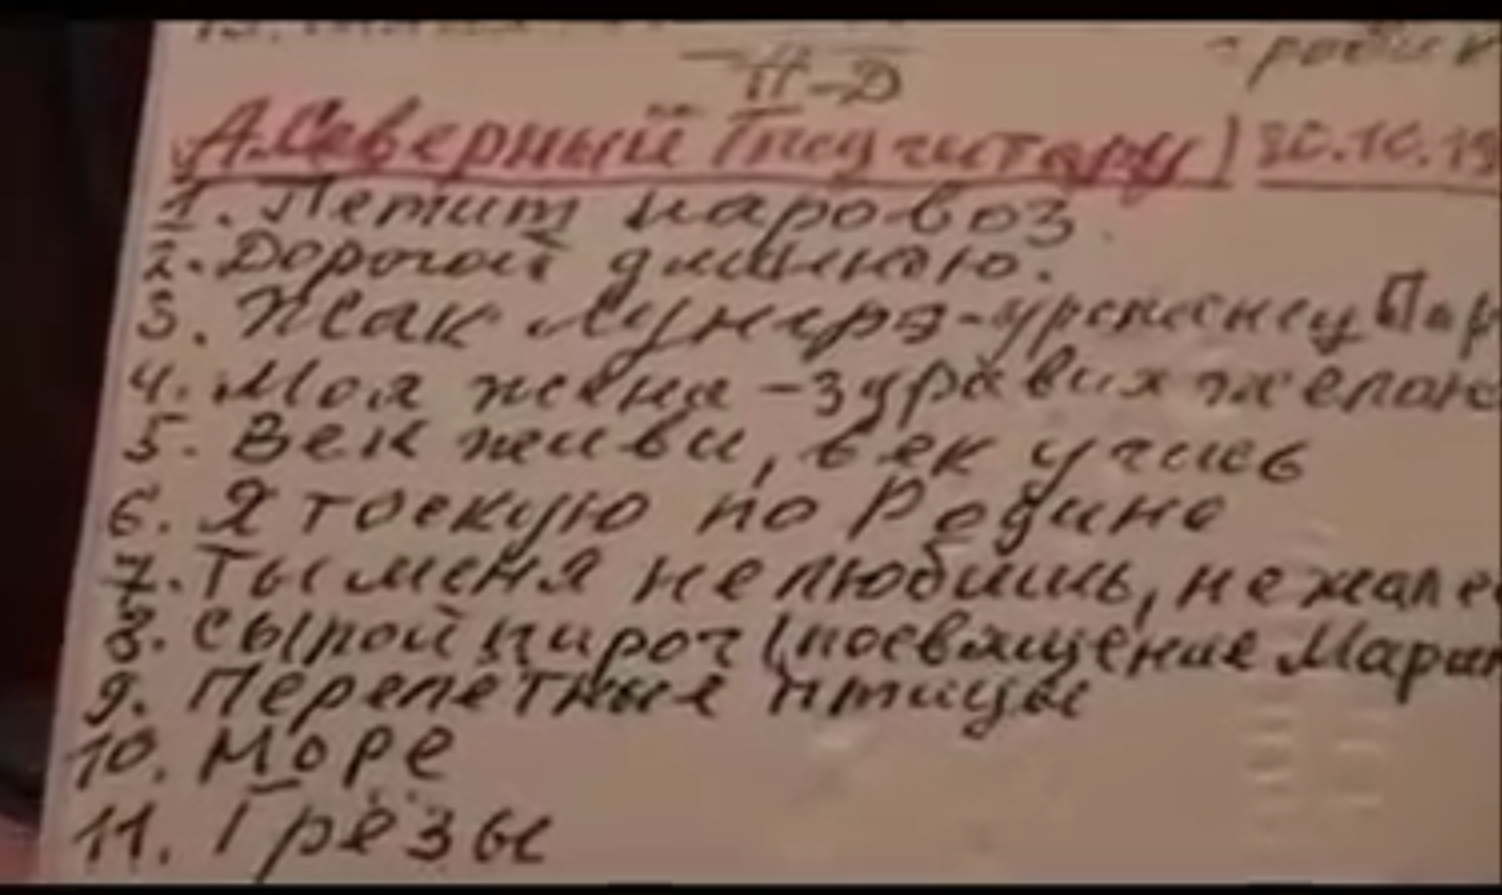 П-Д
А.Северный (под гитару) 30.10.19
1. Летит паровоз.
2. Дорогой длинною.
3. Жак Люнерз-уроженец Пар
4. Моя жена-здравия желаю
5. Век живи, век учись
6. Я тоскую по Родине
7. Ты меня не любишь, не жале
8. Сырой пирог (посвящение Марин
9. Перелётные птицы
10. Море
11. Грёзы